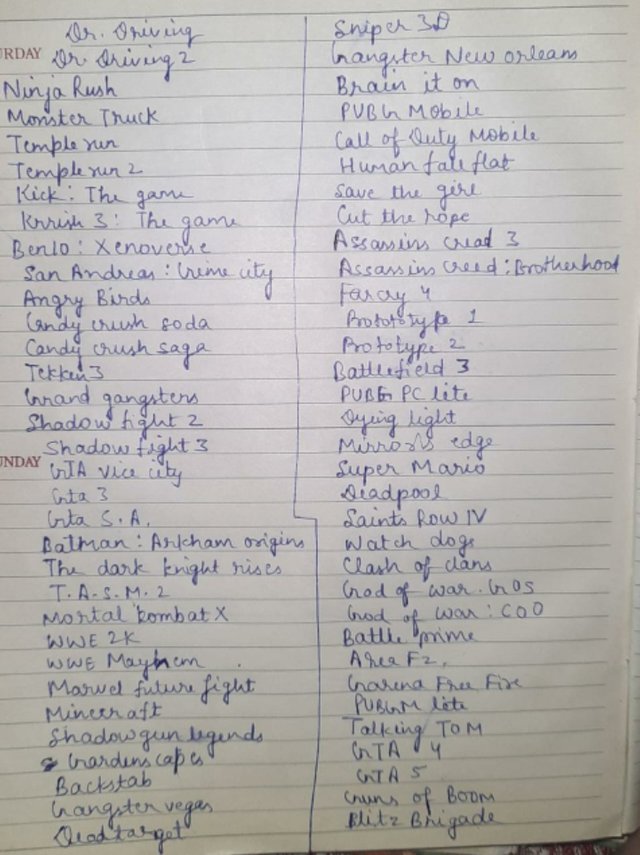 Dr. Driving
URDAY
Dr Driving 2
Ninja Rush
Monster Truck
Temple run
Temple run 2
Kick: The game
Krrish 3: The game
Ben10: Xenoverse
San Andreas: Crime city
Angry Birds
Candy crush soda
Candy crush saga
Tekken 3
Grand gangsters
Shadow fight 2
Shadow fight 3
UNDAY
GTA vice city
Gta 3
Gta S.A.
Batman: Arkham origins
The dark knight rises
T.A.S.M.2
Mortal kombat X
WWE 2K
WWE Mayhem
Marvel future fight
Minecraft
Shadowgun legends
Gardenscapes
Backstab
Gangster vegas
Dead target
Sniper 3D
Gangster New orleans
Brain it on
PUBG Mobile
Call of Duty Mobile
Human fall flat
Save the girl
Cut the rope
Assassins cread 3
Assassins creed: Brotherhood
Farcry 4
Protototype 1
Prototype 2
Battlefield 3
PUBG PC lite
Dying light
Mirror's edge
Super Mario
Deadpool
Saints Row IV
Watch dogs
Clash of clans
God of war: GOS
God of war: COO
Battle prime
Area F2,
Garena Free Fire
PUBGM lite
Talking TOM
GTA 4
GTA 5
Guns of BOOM
Blitz Brigade